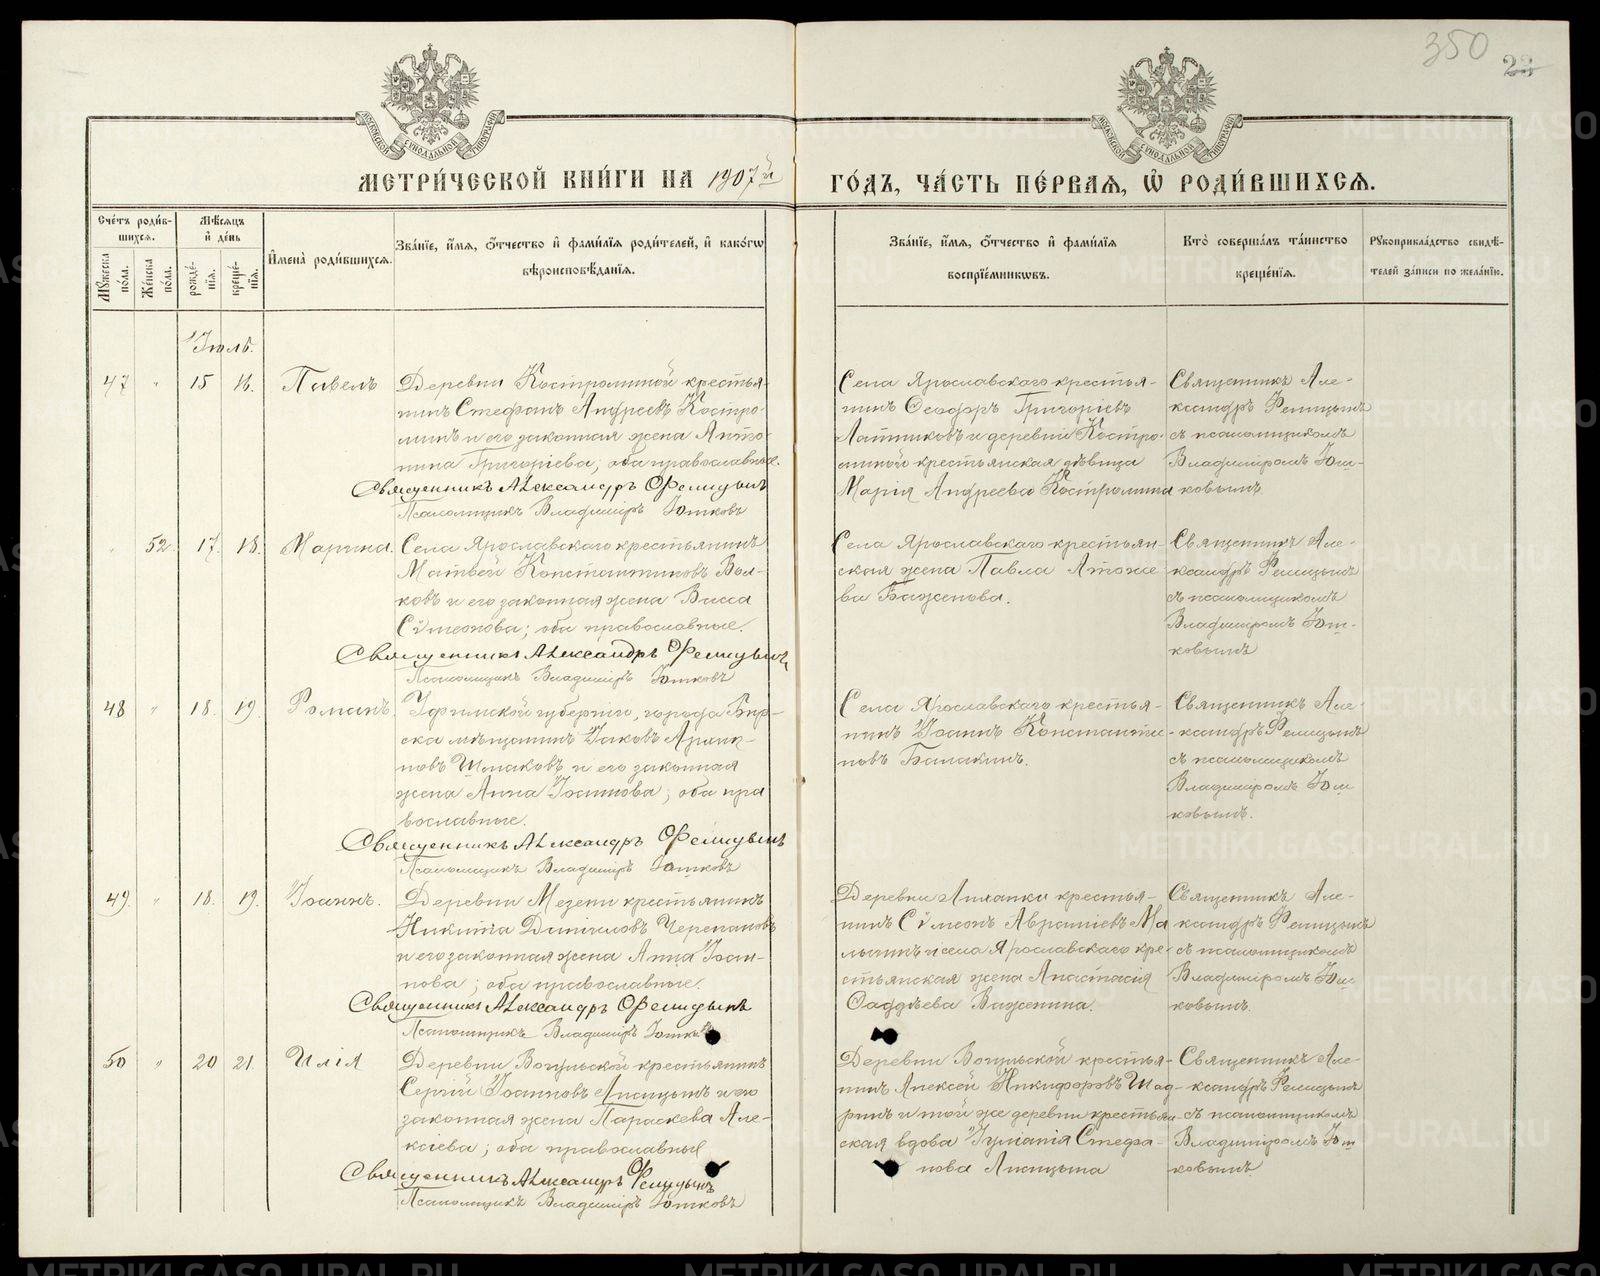 350 23
МОСКОВСКОЙ СѴНОДАЛЬНОЙ ТИПОГРАФІИ
МОСКОВСКОЙ СѴНОДАЛЬНОЙ ТИПОГРАФІИ
МЕТРИ́ЧЕСКОЙ КНИ́ГИ НА 1907й ГО́ДЪ, ЧА́СТЬ ПЕ́РВАЯ, Ѽ РОДИ́ВШИХСЯ.
Сче́тъ роди́вшихся.
Мѣ́сяцъ и де́нь
Мꙋ́жеска по́ла.
Же́нска по́ла.
рожде́нїя.
креще́нїя.
Имена̀ роди́вшихся.
Зва́нїе, и́мя, ѻ́тчество и фами́лїя роди́телей, и како́гѡ
вѣроисповѣ́данїя.
Зва́нїе, и́мя, ѻ́тчество и фами́лїя
воспрїе́мникѡвъ.
Кто̀ соверша́лъ та́инство
креще́нїя.
Рꙋкоприкла́дство свидѣ́телей за́писи по жела́нїю.
Іюль.
47 " 15 16. Павелъ
Деревни Костроминой крестья-
нинъ Стефанъ Андреевъ Костро-
минъ и его законная жена Анто-
нина Григоріева; оба православные.
Священникъ Александръ Ѳелицынъ
Псаломщикъ Владиміръ Юшковъ
Села Ярославскаго крестья-
нинъ Ѳеодоръ Григоріевъ
Латниковъ и деревни Костро-
миной крестьянская дѣвица
Марія Андреева Костромина
Священникъ Але-
ксандръ Фелицынъ
съ псаломщикомъ
Владиміромъ Юш-
ковымъ
" 52. 17. 18. Марина.
Села Ярославскаго крестьянинъ
Матвей Константиновъ Вол-
ковъ и его законная жена Васса
Сѵмеонова; оба православные.
Священникъ Александръ Ѳелицынъ
Псаломщикъ Владиміръ Юшковъ
Села Ярославскаго крестьян-
ская жена Павла
ва Баженова.
Священникъ Але-
ксандръ Фелицынъ
съ псаломщикомъ
Владиміромъ Юш-
ковымъ
48 " 18. 19. Романъ.
Уфимской губерніи, города Бир-
ска мѣщанинъ Іаковъ
новъ Шмаковъ и его законная
жена Анна Іоаннова; оба пра
вославные.
Священникъ Александръ Ѳелицынъ
Псаломщикъ Владиміръ Юшковъ
Села Ярославскаго крестья-
нинъ Іоаннъ Константи-
новъ Балакинъ.
Священникъ Але-
ксандръ Фелицынъ
съ псаломщикомъ
Владиміромъ Юш
ковымъ.
49. " 18. 19. Іоаннъ.
Деревни Мезени крестьянинъ
Никита Даніиловъ Черепановъ
и его законная жена Анна Іоан-
нова; оба православные.
Священникъ Александръ Ѳелицынъ
Псаломщикъ Владиміръ Юшковъ
Деревни Липанки крестья-
нинъ Сѵмеонъ Авраміевъ Ма
лышъ и села Ярославскаго кре-
стьянская жена Анастасія
Ѳаддѣева Важенина.
Священникъ Але-
ксандръ Фелицынъ
съ псаломщикомъ
Владиміромъ Юш
ковымъ.
50 " 20 21. Илія
Деревни Вогульской крестьянинъ
Сергій Іоанновъ Лисицынъ и его
законная жена Параскева Але-
ксіева; оба православные
Священникъ Александръ Ѳелицынъ
Псаломщикъ Владиміръ Юшковъ
Деревни Вогульской крестья-
нинъ Алексей Никифоровъ Шад-
ринъ и той же деревни крестьян-
ская вдова Іуліанія Стефа-
нова Лисицына
Священникъ Але-
ксандръ Фелицынъ
съ псаломщикомъ
Владиміромъ Юш
ковымъ
METRIKI.GASO-URAL.RU